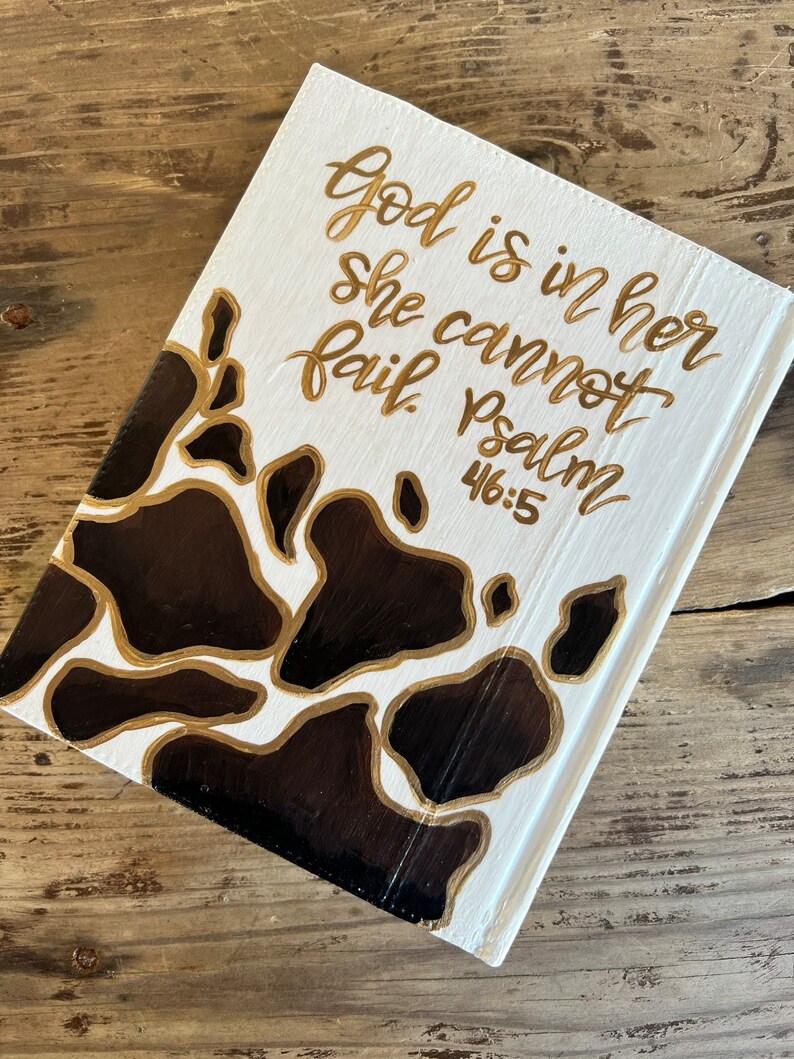 God is in her
she cannot
fail. Psalm
46:5